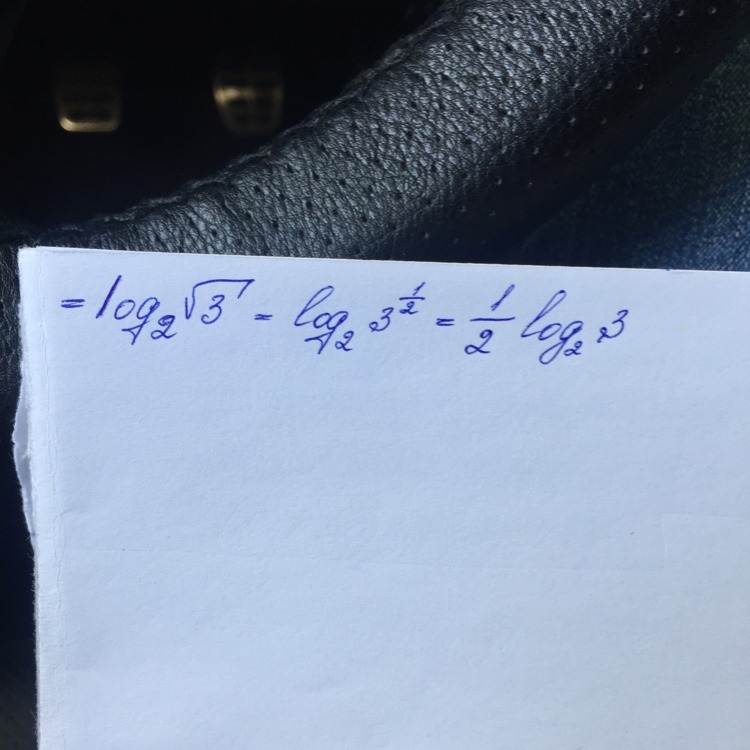 = log₂√3 = log₂ 3^½ = ½ log₂ 3